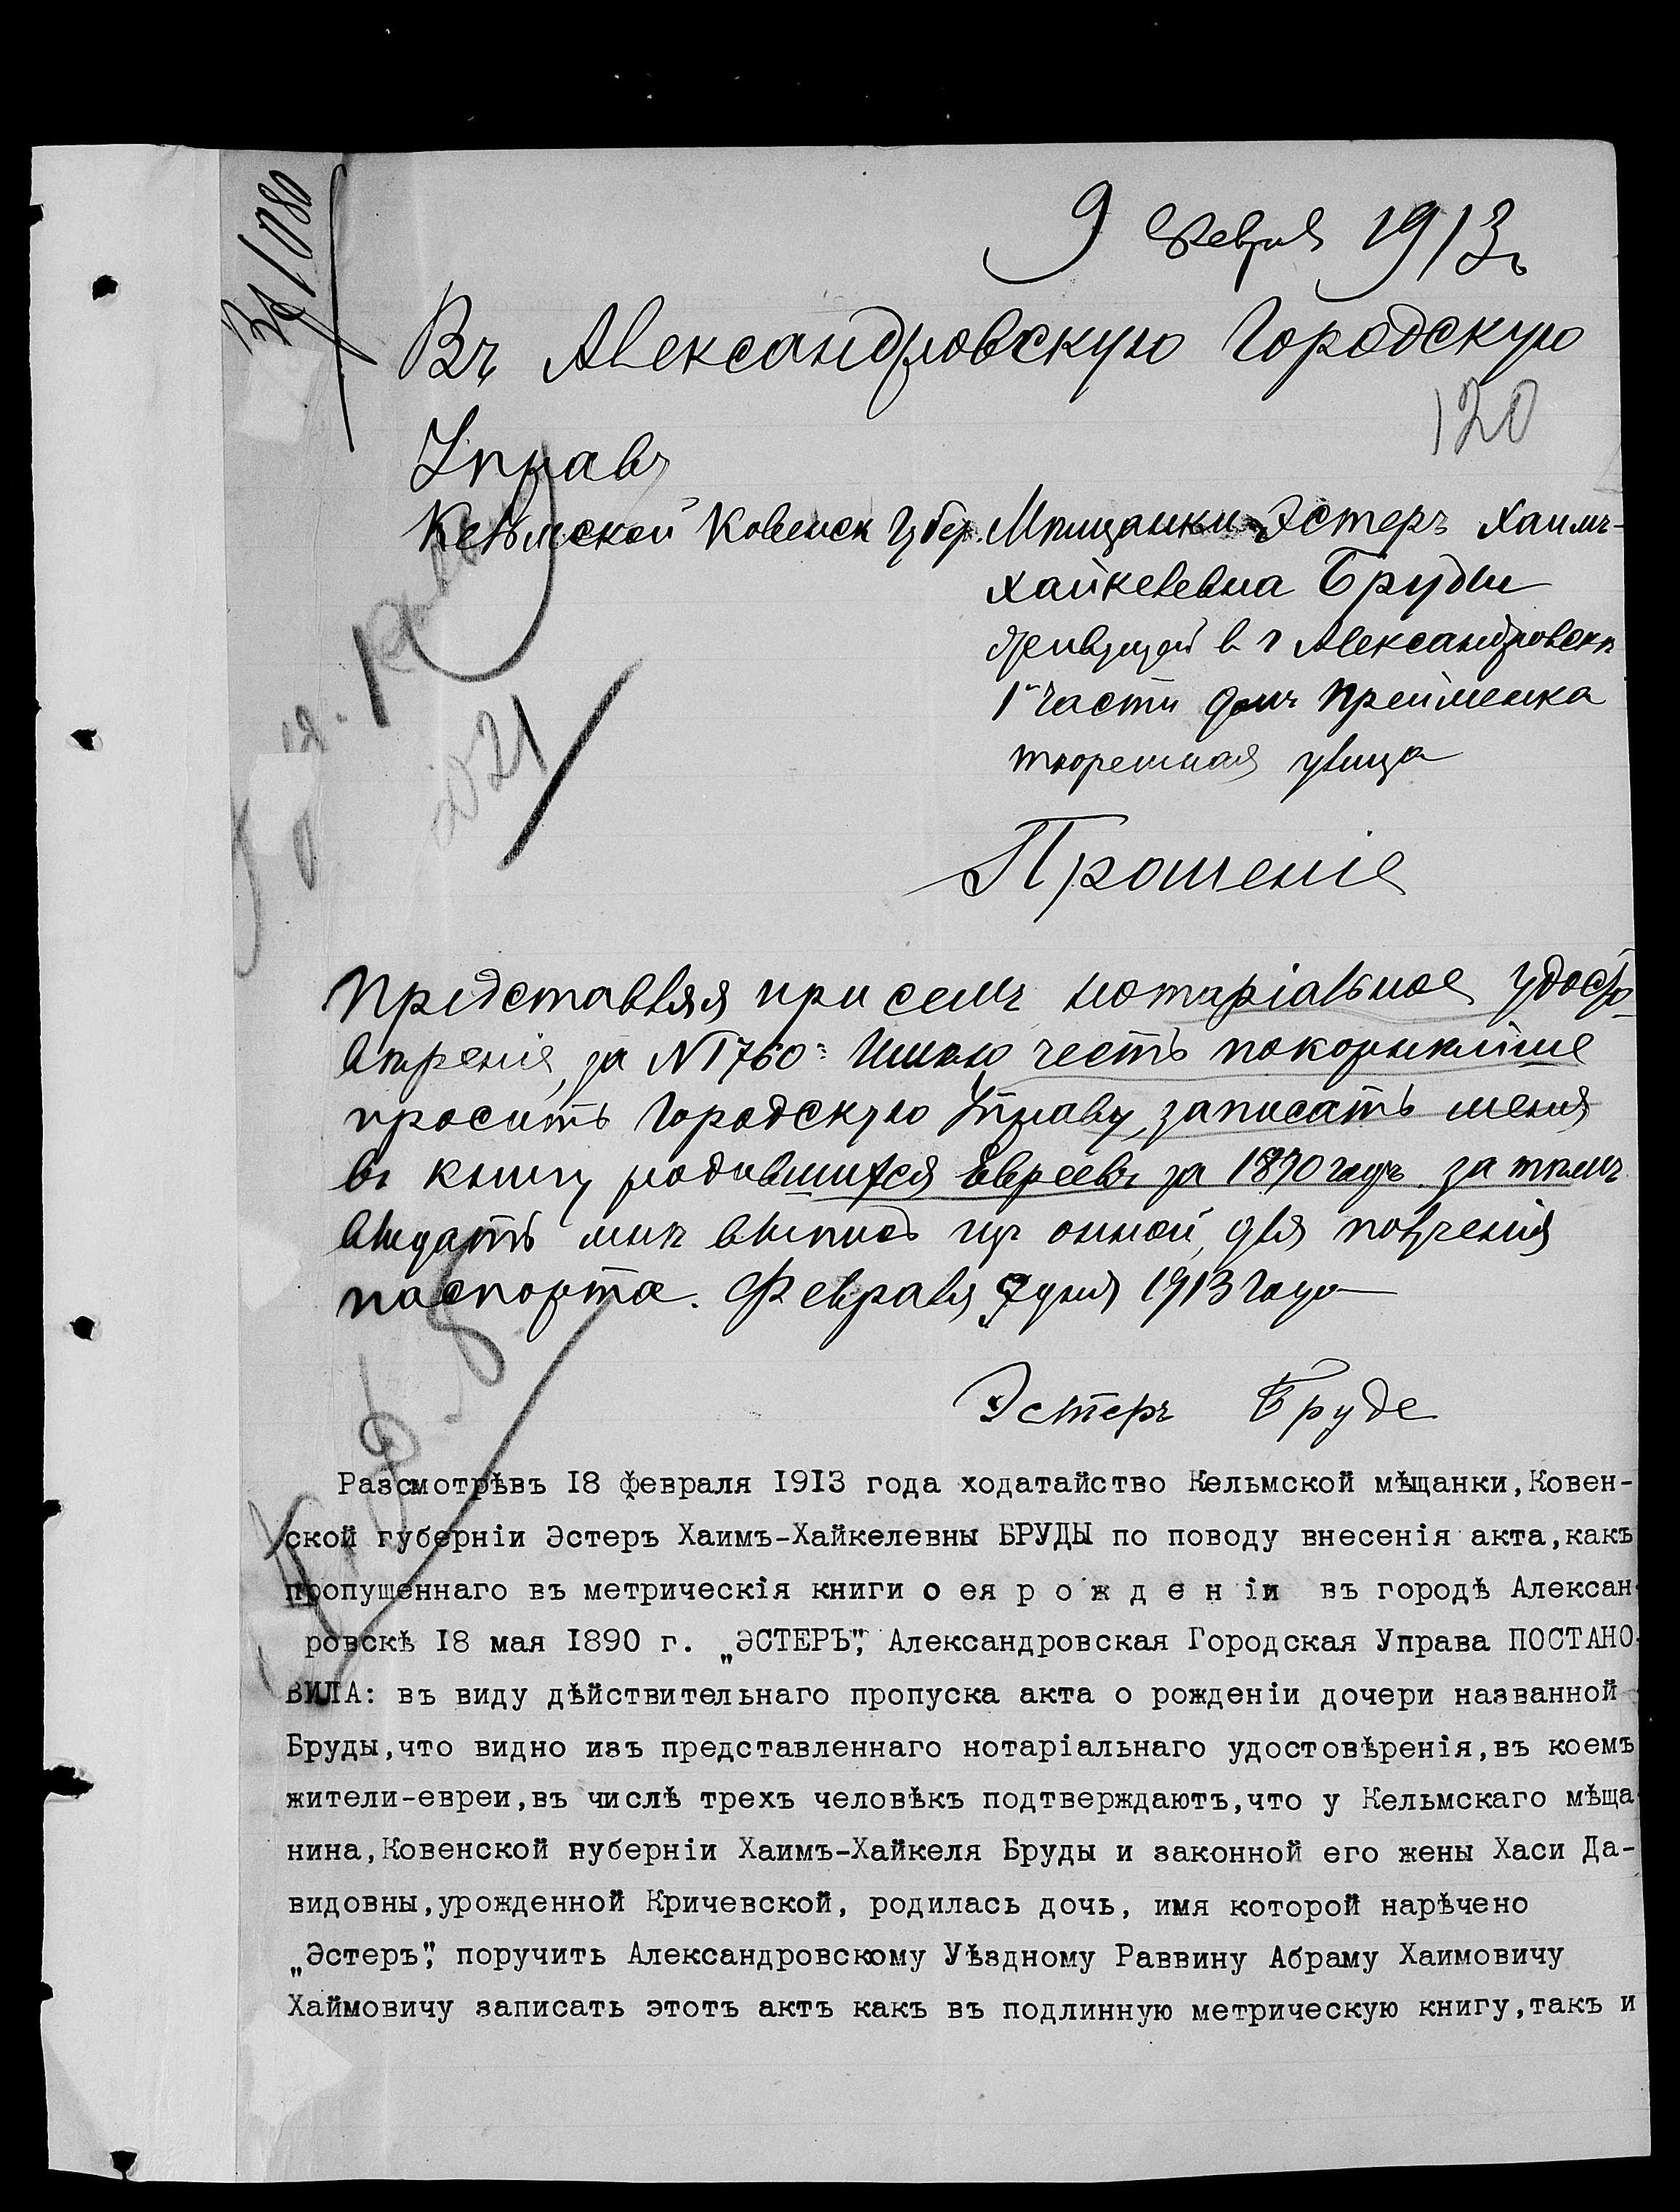 Вх 1080
9 февраля 1913 г
Въ Александровскую Городскую
120
Управу
Кельмской Ковенск Губер. Мѣщанки Эстеръ Хаимъ-
Хайкелевна Бруды
живущей в г Александровскѣ
1й части домъ Прейменка
тюремная улица
Прошеніе
Представляя при семъ нотаріальное удосто-
вѣреніе, за N 1760 Имѣю честь покорнѣйше
просить Городскую Управу, записать меня
въ книгу родившихся Евреевъ за 1890 годъ за тѣмъ
выдать мнѣ выпись изъ оной, для полученія
паспорта. Февраля 9 дня 1913 Года
Эстеръ Бруде
Разсмотрѣвъ 18 февраля 1913 года ходатайство Кельмской мѣщанки, Ковен-
ской губерніи Эстеръ Хаимъ-Хайкелевны БРУДЫ по поводу внесенія акта, какъ
пропущеннаго въ метрическія книги о ея р о ж д е н іи въ городѣ Алексан-
ровскѣ 18 мая 1890 г. „ЭСТЕРЪ", Александровская Городская Управа ПОСТАНО-
ВИЛА: въ виду дѣйствительнаго пропуска акта о рожденіи дочери названной
Бруды, что видно изъ представленнаго нотаріальнаго удостовѣренія, въ коемъ
жители-евреи, въ числѣ трехъ человѣкъ подтверждаютъ, что у Кельмскаго мѣща-
нина, Ковенской вуберніи Хаимъ-Хайкеля Бруды и законной его жены Хаси Да-
видовны, урожденной Кричевской, родилась дочь, имя которой нарѣчено
„Эстеръ", поручить Александровскому Уѣздному Раввину Абраму Хаимовичу
Хаймовичу записать этотъ актъ какъ въ подлинную метрическую книгу, такъ и